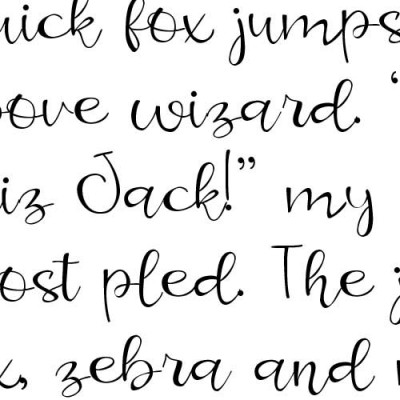 uick fox jumps
ove wizard. “
iz Jack!” my
ost pled. The j
x, zebra and